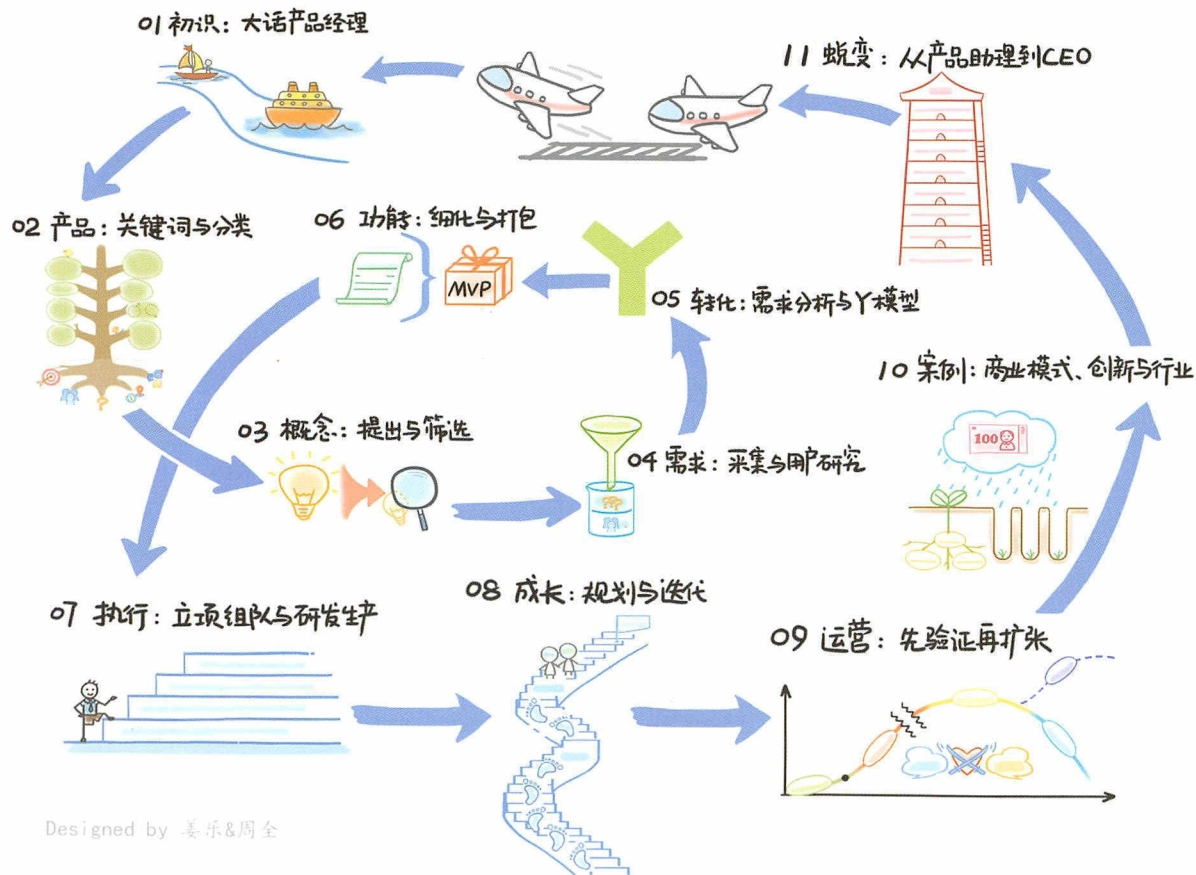 01 初识：大话产品经理
11 蜕变：从产品助理到CEO
02 产品：关键词与分类
06 功能：细化与打包
MVP
05 转化：需求分析与Y模型
10 案例：商业模式、创新与行业
100
03 概念：提出与筛选
04 需求：采集与用户研究
07 执行：立项组队与研发生产
08 成长：规划与迭代
09 运营：先验证再扩张
Designed by 姜乐&周全